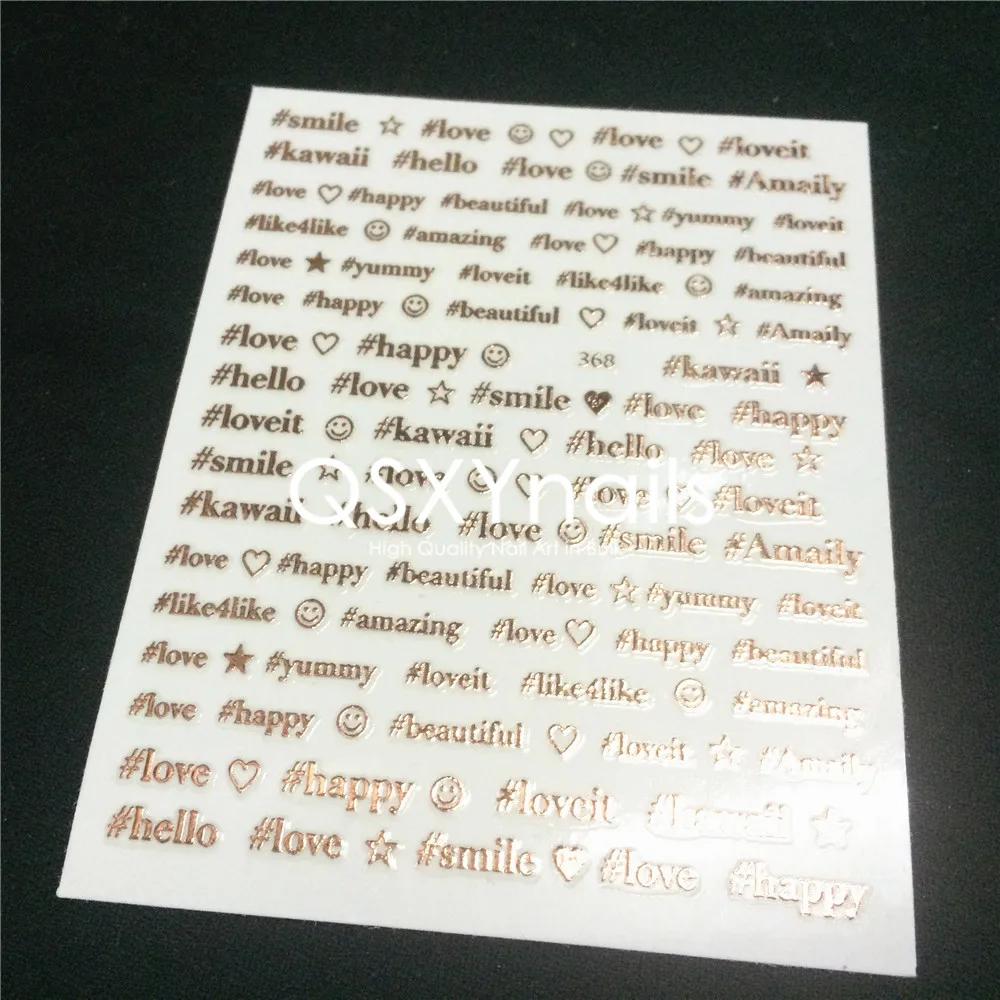 #smile ☆ #love ☺ ♡ #love ♡ #loveit
#kawaii #hello #love ☺ #smile #Amaily
#love ♡ #happy #beautiful #love ☆ #yummy #loveit
#like4like ☺ #amazing #love ♡ #happy #beautiful
#love ★ #yummy #loveit #like4like ☺ #amazing
#love #happy ☺ #beautiful ♡ #loveit ☆ #Amaily
#love ♡ #happy ☺ 368 #kawaii ★
#hello #love ☆ #smile ♥ #love #happy
#loveit ☺ #kawaii ♡ #hello #love ☆
#smile ☆ #love ☺ ♡ #love ♡ #loveit
QSXYnails
#kawaii #hello #love ☺ #smile #Amaily
High Quality Nail Art in Bulk
#love ♡ #happy #beautiful #love ☆ #yummy #loveit
#like4like ☺ #amazing #love ♡ #happy #beautiful
#love ★ #yummy #loveit #like4like ☺ #amazing
#love #happy ☺ #beautiful ♡ #loveit ☆ #Amaily
#love ♡ #happy ☺ #loveit #kawaii ☆
#hello #love ☆ #smile ♡ #love #happy